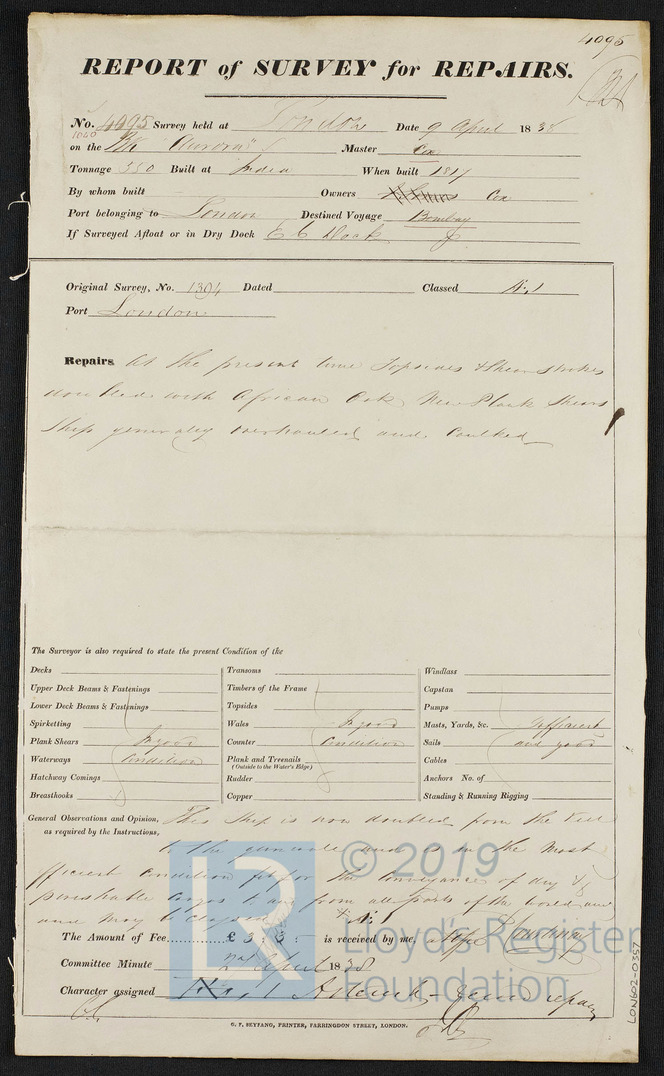 4095
REPORT of SURVEY for REPAIRS.
No. 4095 Survey held at London Date 9 April 1838
1040
on the "Aurora" Master Cox
Tonnage 550 Built at India When built 1817
By whom built Owners Cox
Port belonging to London Destined Voyage Bombay
If Surveyed Afloat or in Dry Dock Dock
Original Survey, No. 1394 Dated Classed Æ 1
Port London
Repairs At the present time Topsides & Sheer strakes
doubled with African Oak New Plank Shears
Ship generaly overhauled and Caulked
The Surveyor is also required to state the present Condition of the
Decks
Upper Deck Beams & Fastenings
Lower Deck Beams & Fastenings
Spirketting
Plank Shears In good
Waterways Condition
Hatchway Comings
Breasthooks
Transoms
Timbers of the Frame
Topsides
Wales In good
Counter Condition
Plank and Treenails
(Outside to the Water's Edge)
Rudder
Copper
Windlass
Capstan
Pumps
Masts, Yards, &c. Sufficient
Sails and good
Cables
Anchors No. of
Standing & Running Rigging
General Observations and Opinion, This Ship is now doubled from the Keel
as required by the Instructions, to the gunwale and is in the most
efficient condition fit for the conveyance of dry &
perishable Cargos to and from all parts of the world and
The Amount of Fee £ 3 : is received by me,
Committee Minute April 1838
Character assigned 1
repairs
G. F. SEYFANG, PRINTER, FARRINGDON STREET, LONDON.
LON602-0357
LR
© 2019
Lloyd's Register
Foundation